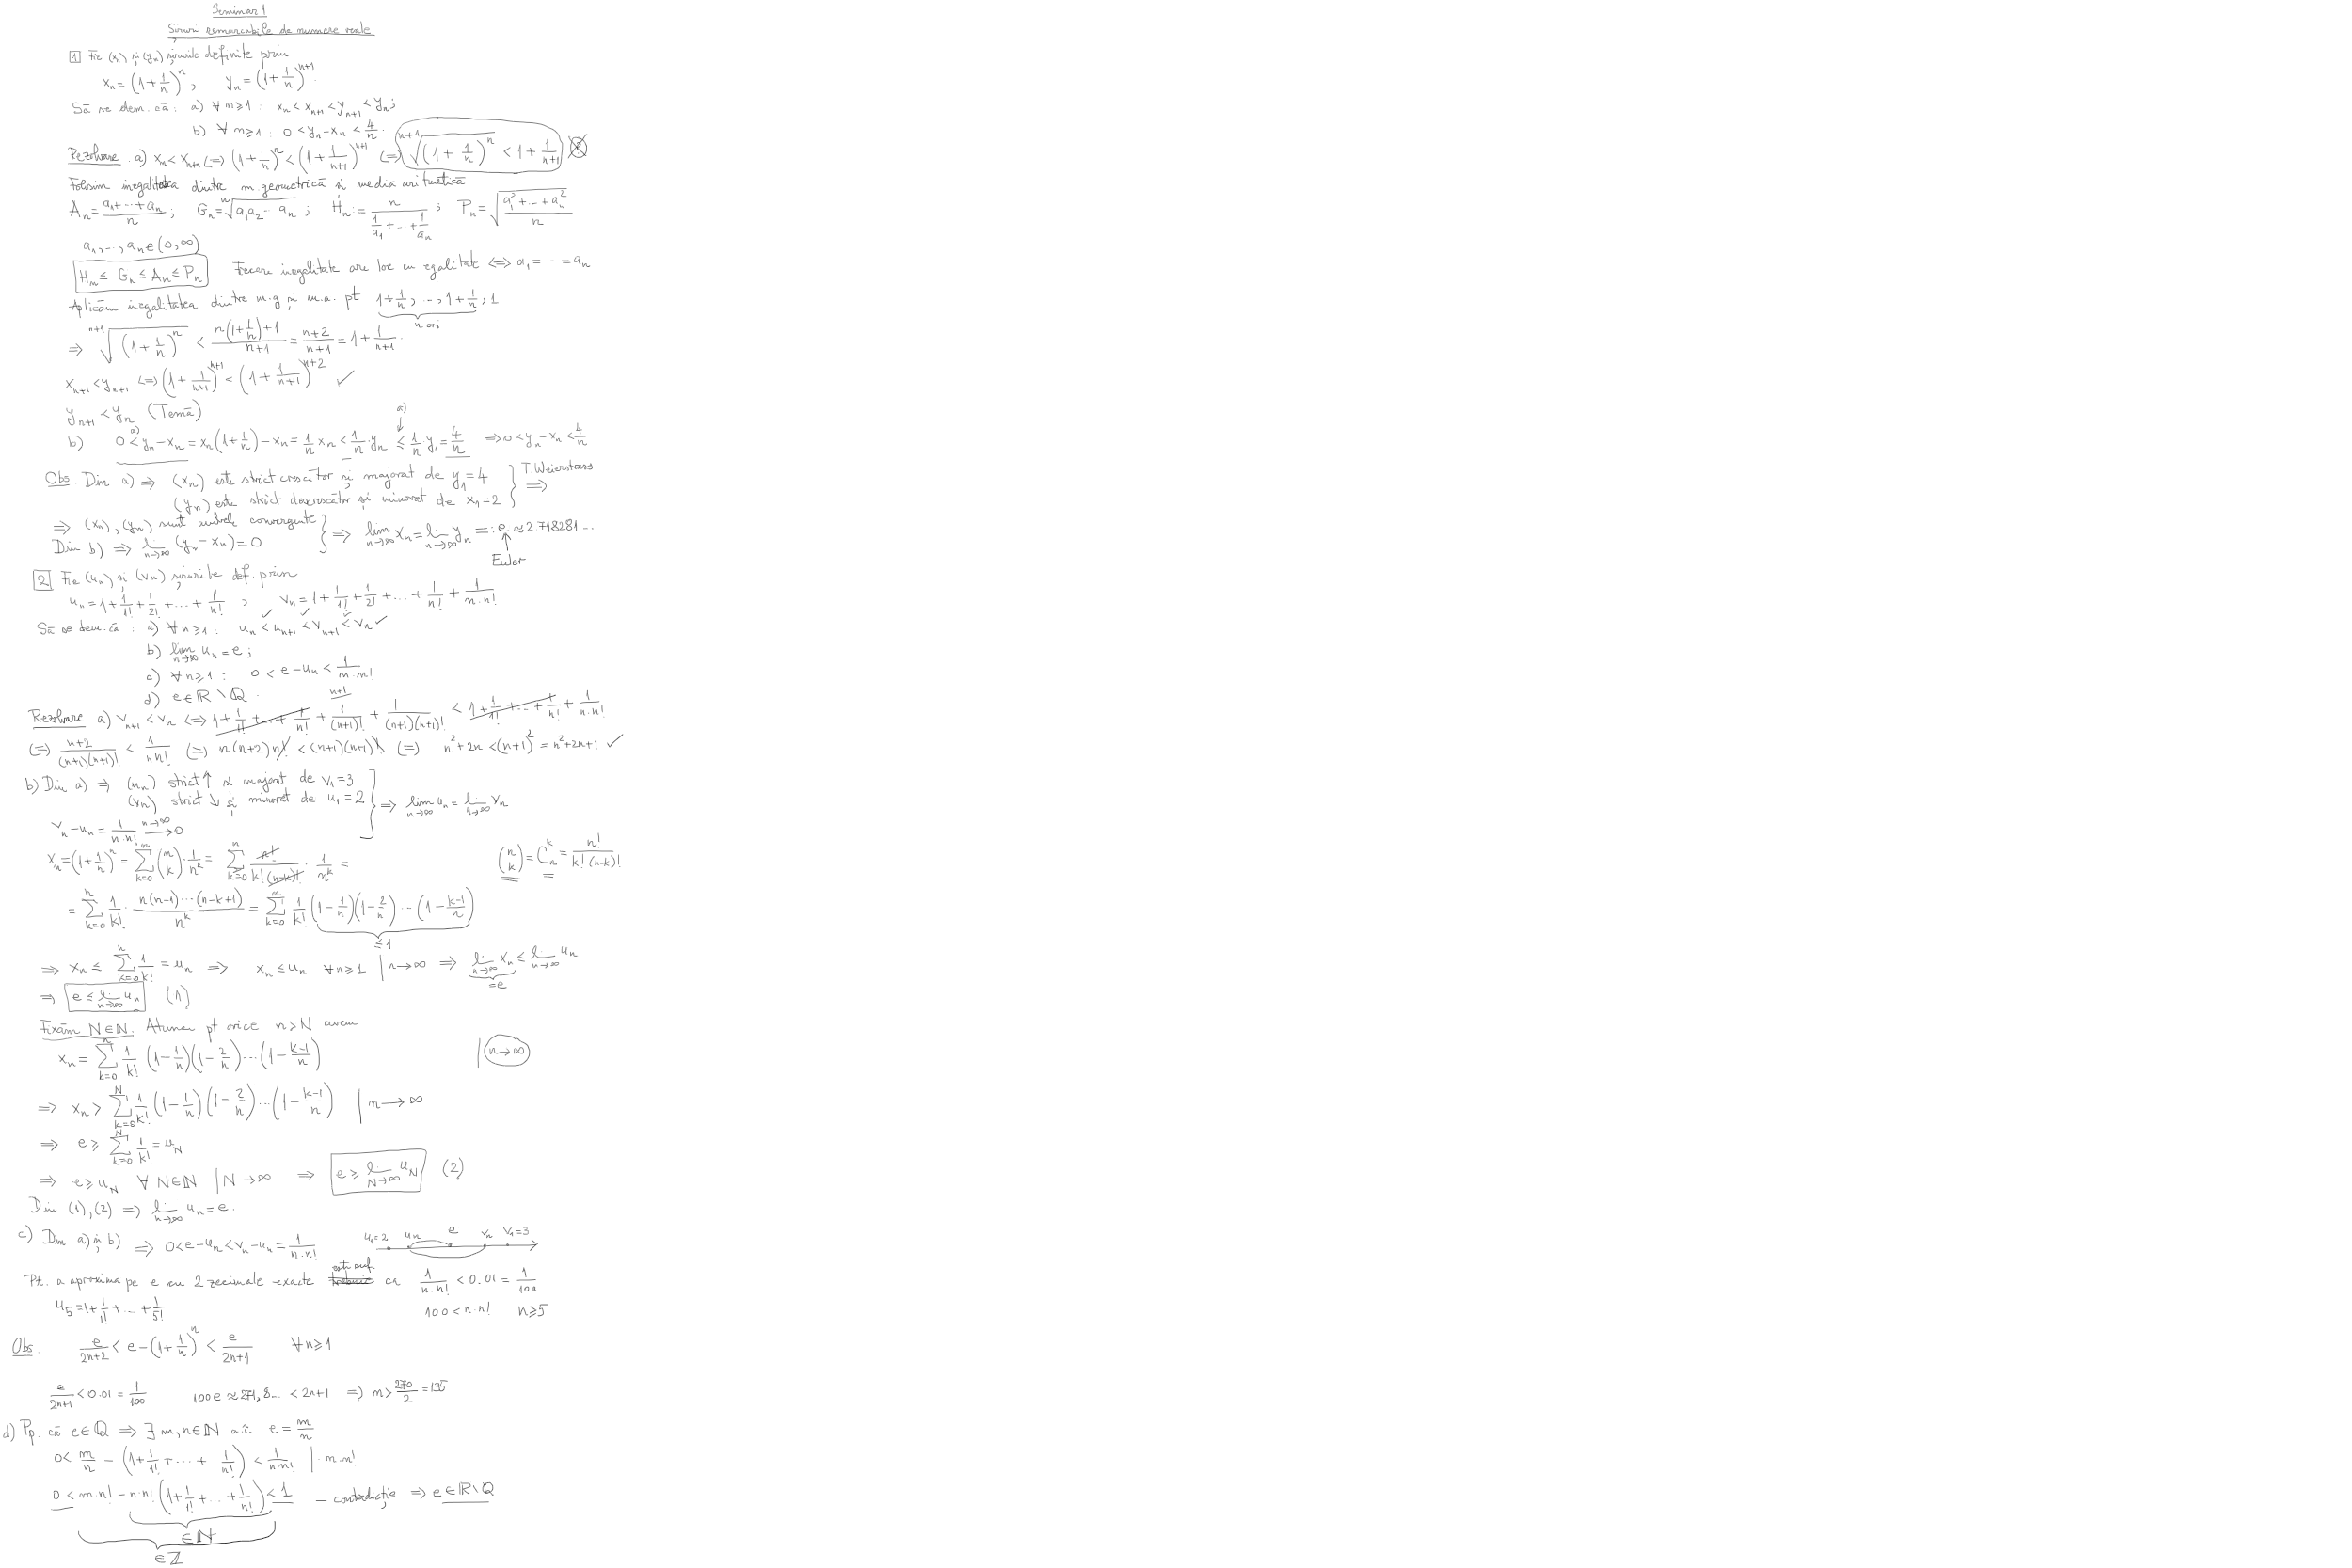 Seminar 1
Șiruri remarcabile de numere reale
1 Fie (xₙ) și (yₙ) șirurile definite prin
xₙ = (1 + 1/n)ⁿ, yₙ = (1 + 1/n)ⁿ⁺¹.
Să se dem. că: a) ∀ n ≥ 1 : xₙ < xₙ₊₁ < yₙ₊₁ < yₙ;
b) ∀ n ≥ 1 : 0 < yₙ - xₙ < 4/n.
Rezolvare. a) xₙ < xₙ₊₁ (=) (1 + 1/n)ⁿ < (1 + 1/(n+1))ⁿ⁺¹ (=) ⁿ⁺¹√((1 + 1/n)ⁿ) < 1 + 1/(n+1)
Folosim inegalitatea dintre m geometrică și media aritmetică
Aₙ = (a₁ + ... + aₙ)/n ; Gₙ = ⁿ√(a₁a₂...aₙ) ; Hₙ := n/(1/a₁ + ... + 1/aₙ) ; Pₙ = √((a₁² + ... + aₙ²)/n)
a₁, ..., aₙ ∈ (0, ∞)
Hₙ ≤ Gₙ ≤ Aₙ ≤ Pₙ Fiecare inegalitate are loc cu egalitate <=> a₁ = ... = aₙ
Aplicăm inegalitatea dintre m.g și m.a. pt 1 + 1/n, ..., 1 + 1/n, 1
n ori
=> ⁿ⁺¹√((1 + 1/n)ⁿ) < (n(1 + 1/n) + 1)/(n+1) = (n+2)/(n+1) = 1 + 1/(n+1).
xₙ₊₁ < yₙ₊₁ <=> (1 + 1/(n+1))ⁿ⁺¹ < (1 + 1/(n+1))ⁿ⁺² ✓
yₙ₊₁ < yₙ (Temă)
a)
b) 0 <a) yₙ - xₙ = xₙ(1 + 1/n) - xₙ = 1/n xₙ < 1/n · yₙ ≤ 1/n · y₁ = 4/n => 0 < yₙ - xₙ < 4/n
Obs. Din a) => (xₙ) este strict crescător și majorat de y₁ = 4 } T. Weierstrass =>
(yₙ) este strict descrescător și minorat de x₁ = 2
=> (xₙ), (yₙ) sunt ambele convergente
Din b) => lim n→∞ (yₙ - xₙ) = 0 } => lim n→∞ xₙ = lim n→∞ yₙ =: e ≈ 2.718281...
Euler
2 Fie (uₙ) și (vₙ) șirurile def. prin
uₙ = 1 + 1/1! + 1/2! + ... + 1/n! , vₙ = 1 + 1/1! + 1/2! + ... + 1/n! + 1/(n·n!)
Să se dem. că : a) ∀ n ≥ 1 : uₙ < uₙ₊₁ < vₙ₊₁ < vₙ ✓
b) lim n→∞ uₙ = e ;
c) ∀ n ≥ 1 : 0 < e - uₙ < 1/(n·n!)
d) e ∈ ℝ \ ℚ.
n+1
Rezolvare a) vₙ₊₁ < vₙ <=> 1 + 1/1! + ... + 1/n! + 1/(n+1)! + 1/((n+1)(n+1)!) < 1 + 1/1! + ... + 1/n! + 1/(n·n!)
(=) (n+2)/((n+1)(n+1)!) < 1/(n n!) (=) n(n+2) n! < (n+1)(n+1)! (=) n² + 2n < (n+1)² = n² + 2n + 1 ✓
b) Din a) => (uₙ) strict ↑ și majorat de v₁ = 3
(vₙ) strict ↓ și minorat de u₁ = 2 } => lim n→∞ uₙ = lim n→∞ vₙ
vₙ - uₙ = 1/(n·n!) n→∞ → 0
xₙ = (1 + 1/n)ⁿ = Σ k=0 n (n k) · 1/nᵏ = Σ k=0 n n!/(k!(n-k)!) · 1/nᵏ = (n k) = Cₙᵏ = n!/(k!(n-k)!)
= Σ k=0 n 1/k! · n(n-1)···(n-k+1)/nᵏ = Σ k=0 n 1/k! (1 - 1/n)(1 - 2/n)...(1 - (k-1)/n)
≤ 1
=> xₙ ≤ Σ k=0 n 1/k! = uₙ => xₙ ≤ uₙ ∀ n ≥ 1 | n→∞ => lim n→∞ xₙ ≤ lim n→∞ uₙ
= e
=> e ≤ lim n→∞ uₙ (1)
Fixăm N ∈ ℕ. Atunci pt orice n > N avem
xₙ = Σ k=0 n 1/k! (1 - 1/n)(1 - 2/n)...(1 - (k-1)/n) | n→∞
=> xₙ > Σ k=0 N 1/k! (1 - 1/n)(1 - 2/n)...(1 - (k-1)/n) | n→∞
=> e ≥ Σ k=0 N 1/k! = u_N
=> e ≥ u_N ∀ N ∈ ℕ | N→∞ => e ≥ lim N→∞ u_N (2)
Din (1), (2) => lim n→∞ uₙ = e.
c) Din a) și b) => 0 < e - uₙ < vₙ - uₙ = 1/(n·n!) u₁=2 uₙ e vₙ v₁=3
Pt. a aproxima pe e cu 2 zecimale exacte este suf. ca 1/(n·n!) < 0.01 = 1/100
u₅ = 1 + 1/1! + ... + 1/5! 100 < n·n! n ≥ 5
Obs. e/(2n+2) < e - (1 + 1/n)ⁿ < e/(2n+1) ∀ n ≥ 1
e/(2n+1) < 0.01 = 1/100 100e ≈ 271,8... < 2n+1 => n > 270/2 = 135
d) Pp. că e ∈ ℚ => ∃ m, n ∈ ℕ a.î. e = m/n
0 < m/n - (1 + 1/1! + ... + 1/n!) < 1/(n·n!) | · n·n!
0 < m·n! - n·n! (1 + 1/1! + ... + 1/n!) < 1 - contradicție => e ∈ ℝ \ ℚ
∈ ℕ
∈ ℤ